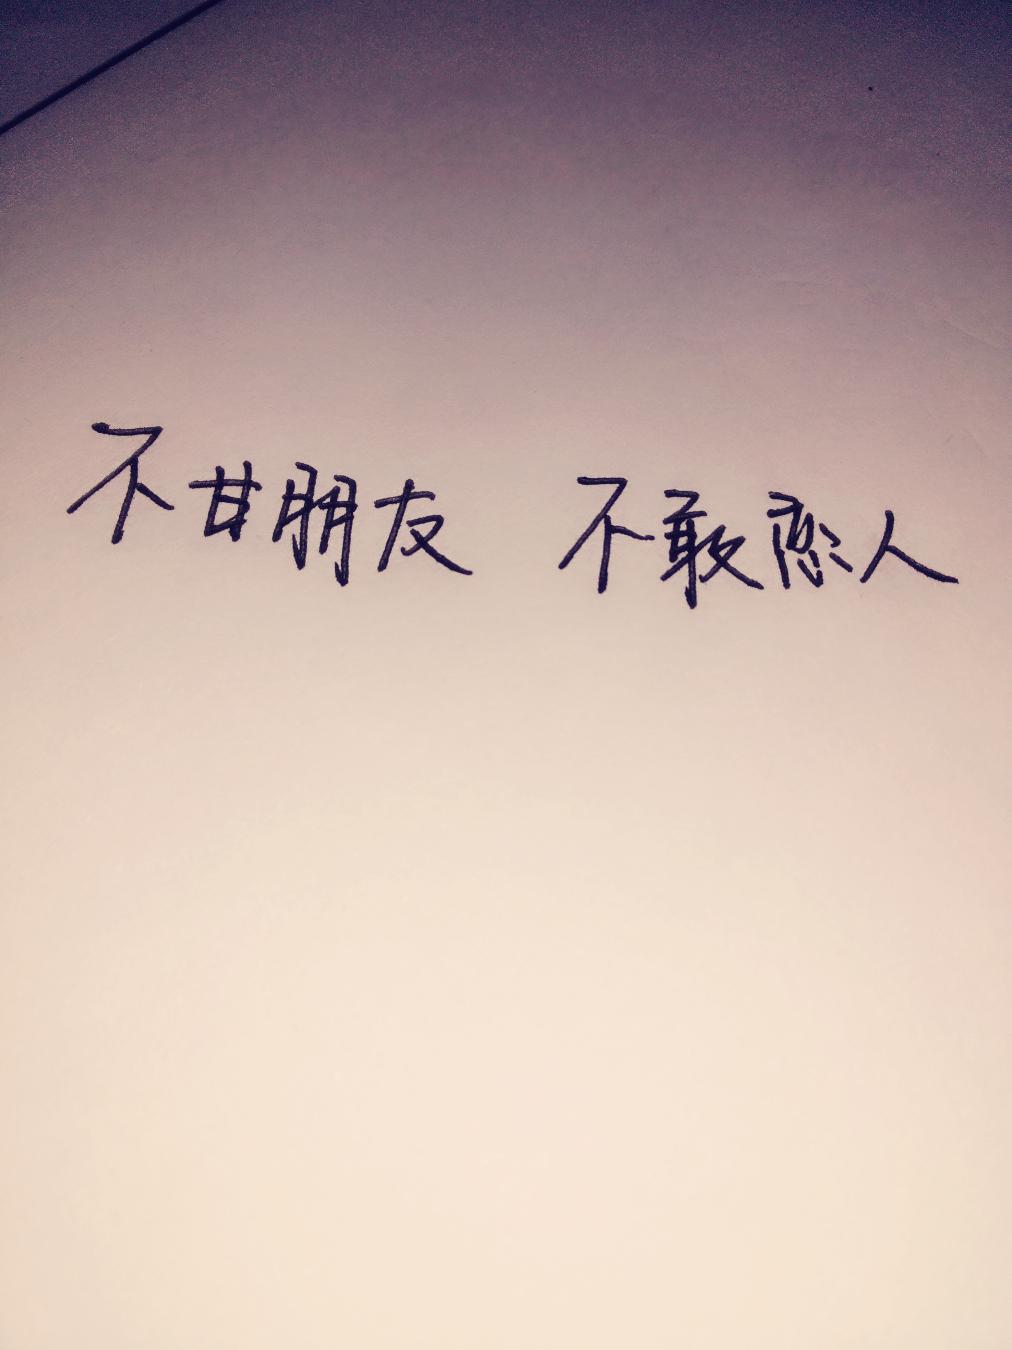 不甘朋友 不敢恋人